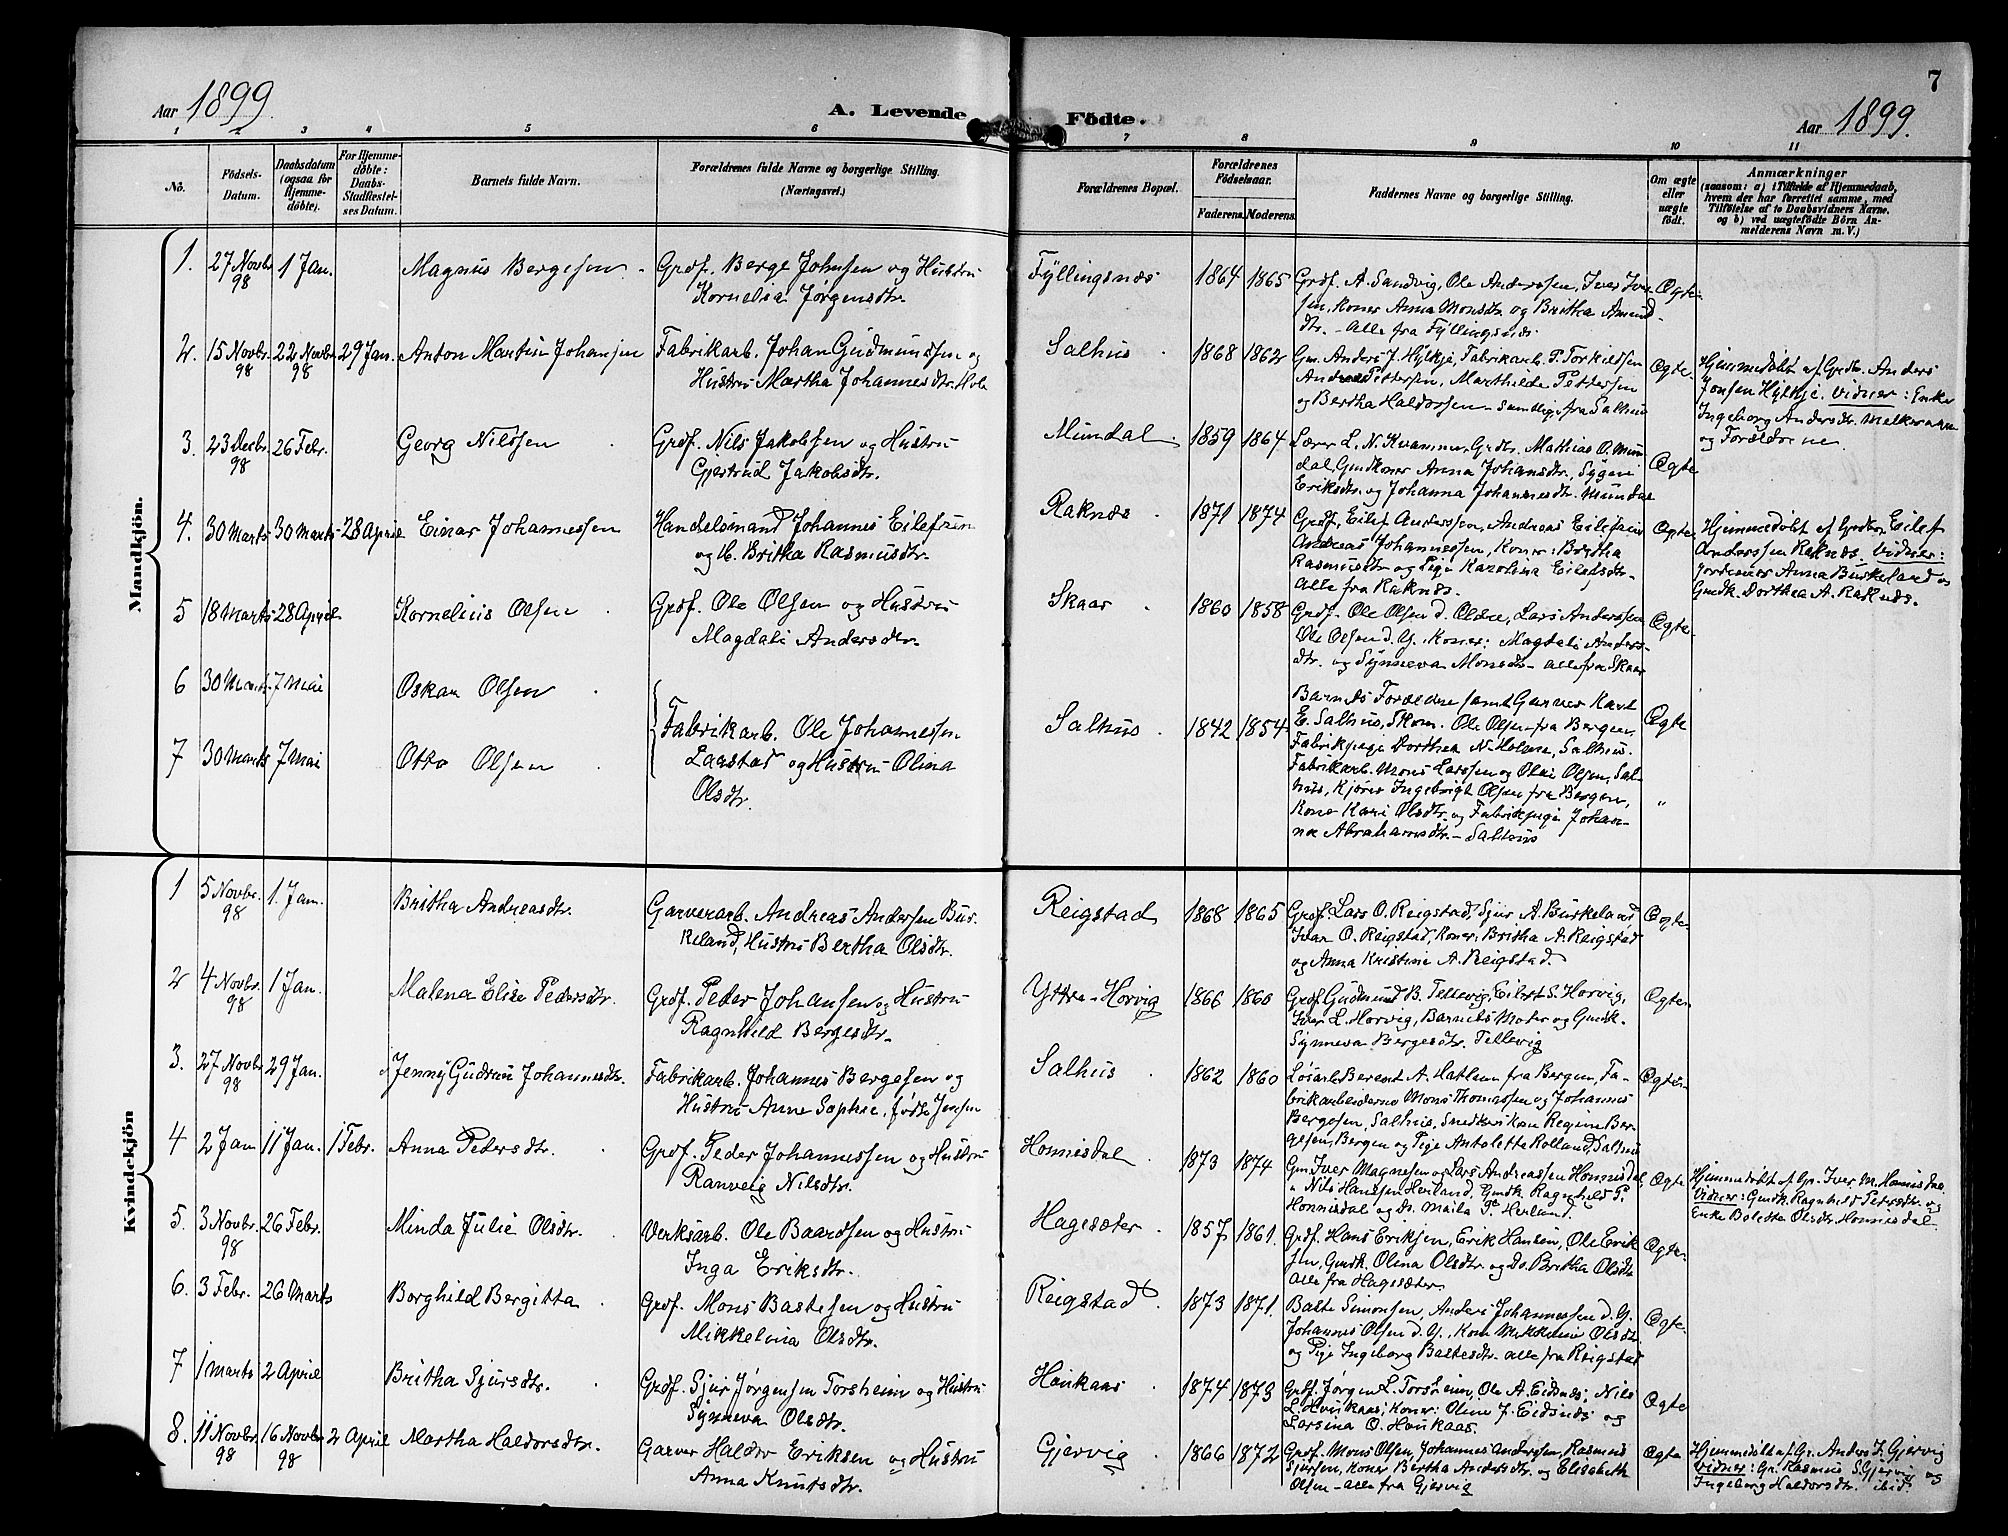 7
Aar 1899.
A. Levende Födte.
Aar 1899.
1 2 3 4 5 6 7 8 9 10 11
No.
Födsels-Datum.
Daabsdatum (ogsaa for Hjemme-döbte).
For Hjemme-döbte: Daabs-Stadfæstel-ses Datum.
Barnets fulde Navn.
Forældrenes fulde Navne og borgerlige Stilling. (Næringsvei.)
Forældrenes Bopæl.
Forældrenes Födselsaar.
Faderens. Moderens.
Faddernes Navne og borgerlige Stilling.
Om ægte eller uægte födt.
Anmærkninger
(saasom: a) i Tilfælde af Hjemmedaab,
hvem der har forrettet samme, med
Tilföielse af to Daabsvidners Navne.
og b) ved uægtefödte Börn An-
melderens Navn m. V.)
Mandkjön.
1. 27 Novbr. 98 1 Jan. Magnus Bergesen Grdf. Berge Johnsen og Hustru
Kornelia Jørgensdtr.
Fyllingsnæs 1864 1865 Grdf. A. Sandvig, Ole Anderssen, Iver Iver-
sen, Koner Anna Monsdtr. og Britha Amund-
dtr. - alle fra Fyllingsnæs.
Ægte
2. 15 Novbr. 98 22 Novbr. 98 29 Jan. Anton Martin Johansen Fabrikarb. Johan Gudmundsen og
Hustru Martha Johannesdtr.
Salhus 1868 1862 Gm. Anders J. Hylkje, Fabrikarb. P. Torkildsen
Andreas Pettersen, Marthilde Pettersen
og Bertha Haldorssen - samtlige fra Salhus
Ægte. Hjemmedøbt af Grdb. Anders
Jonsen Hylkje. Vidner: Enke
Ingeborg Andersdtr.
og Forældrene
3. 23 Decbr. 98 26 Febr. Georg Nilssen Grdf. Nils Jakobsen og Hustru
Gjertrud Jakobsdtr.
Mundal 1859 1864 Lærer L. N. Kvamme, Grdtr. Mathias O. Mun-
dal, Gmdkoner Anna Johansdtr., Sygni
Eriksdtr. og Johanna Johannesdtr. Mundal
Ægte
4. 30 Marts 30 Marts 28 April Einar Johannessen Handelsmand Johannes Eilefsen
og H. Britha Rasmusdtr.
Raknæs 1871 1874 Grdf. Eilef Anderssen, Andreas Eilefsen
Andreas Johannessen, Koner: Britha
Rasmusdtr. og Pige Karolina Eilefsdtr.
alle fra Raknæs.
Ægte Hjemmedøbt af Grdbr. Eilef
Anderssen Raknæs. Vidner:
Jordemor Anna Birkeland og
Gmdk. Dorthea A. Raknæs.
5 18 Marts 28 April Kornelius Olsen Grdf. Ole Olsen og Hustru
Magdali Andersdtr.
Skaar 1860 1858 Grdf. Ole Olsen d. Ældre, Lars Anderssen
Ole Olsen d. Y. Koner: Magdali Anders-
dtr. og Synneva Monsdtr. - alle fra Skaar
Ægte
6 30 Marts 7 Mai Oskar Olsen
7 30 Marts 7 Mai Otto Olsen
Fabrikarb. Ole Johannessen
Laastad og Hustru Olina
Olsdtr.
Salhus 1842 1854 Barnets Forældre samt Garver Karl
E. Salhus, Skom. Ole Olsen fra Bergen,
Fabrikpige Dorthea N. Holme, Salhus.
Fabrikarb. Mons Larssen og Olai Olsen, Sal-
hus, Kjører Ingebrigt Olsen fra Bergen,
Kone Kari Olsdtr. og Fabrikpige Johan-
na Abrahamsdtr. - Salhus
Ægte
"
Kvindekjön
1 5 Novbr. 98 1. Jan. Britha Andreasdtr. Garverarb. Andreas Andersen Bir-
keland, Hustru Bertha Olsdtr.
Reigstad 1868 1865 Grdf. Lars O. Reigstad, Sjur A. Birkeland
Ivar O. Reigstad, Koner: Britha A. Reigstad
og Anna Kristine A. Reigstad.
Ægte
2 4 Novbr. 98 1 Jan. Malena Elise Pedersdtr. Grdf. Peder Johansen og Hustru
Ragnhild Bergesdtr.
Yttre-Horvig 1866 1860 Grdf. Gudmund B. Tellevig, Eilert S. Horvig,
Iver L. Horvig, Barnets Moder og Gmdk.
Synneva Bergesdtr. Tellevig
Ægte
3. 27 Novbr. 98 29 Jan. Jenny Gudrun Johannesdtr. Fabrikarb. Johannes Bergesen og
Hustru Anne Sophie, født Jensen
Salhus 1862 1860 Løsarb. Berent A. Hatlem fra Bergen, Fa-
brikarbeiderne Mons Thomassen og Johannes
Bergesen, Salhus, Snedker Kone Regine Ber-
gesen, Bergen og Pige Antolette Rolland, Salhus
Ægte
4 2 Jan. 11 Jan. 1 Febr. Anna Pedersdtr. Grdf. Peder Johannessen og Hustru
Ranveig Nilsdtr.
Honnisdal 1873 1874 Gm. Iver Magnesen og Lars Andreassen Honnisdal,
" Nils Hanssen Herland, Gmdk. Ragnhild P.
Honnisdal og Ds. Maila P. Herland.
Ægte Hjemmedøbt af Gr. Iver M. Honnisdal.
Vidner: Gmdk. Ragnhild Petersdtr. og
Enke Boletta Olsdtr. Honnisdal.
5. 3 Novbr. 98 26 Febr. Minda Julie Olsdtr. Verksarb. Ole Baardsen og Hustru
Inga Eriksdtr.
Hagesæter 1857 1861. Grdf. Hans Eriksen, Erik Hansen, Ole Erik
sen, Gmdk. Olina Olsdtr. og Ds. Britha Olsdtr.
alle fra Hagesæter.
Ægte
6. 3 Febr. 26 Marts Borghild Bergitta Grdf. Mons Bastesen og Hustru
Mikkelina Olsdtr.
Reigstad 1873 1871. Baste Simonsen, Anders Johannessen d. Y.
Johannes Olsen d. Y., Kone Mikkeline Olsdtr.
og Pige Ingeborg Bastesdtr. alle fra Reigstad
Ægte
7 1 Marts 2 April Britha Sjursdtr. Grdf. Sjur Jørgensen Torsheim og Hustru
Synneva Olsdtr.
Houkaas 1874 1873 Grdf. Jørgen L. Torsheim, Ole A. Eidsnæs, Nils
L. Houkaas, Koner: Oline J. Eidsnæs og
Larsina O. Houkaas.
Ægte
8. 11 Novbr. 98 16 Novbr. 98 2 April Martha Haldorsdtr. Garver Haldor Eriksen og Hustru
Anna Knutsdtr.
Gjervig 1866 1872 Grdf. Mons Olsen, Johannes Andersen, Rasmus
Sjursen, Koner Bertha Andersdtr. og Elisabeth
Olsen - alle fra Gjervig
Ægte Hjemmedøbt af Gr. Anders J. Gjervig
Vidner: Gr. Rasmus S. Gjervig og
Ingeborg Haldorsdtr. ibid.